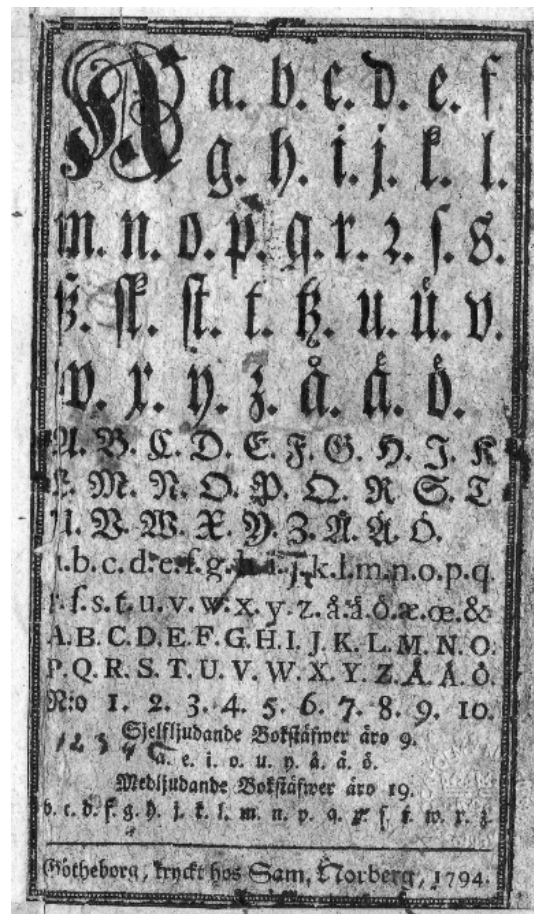 A a. b. c. d. e. f
g. h. i. j. k. l.
m. n. o. p. q. r. ꝛ. ſ. s.
ß. ſk. ſt. t. tz. u. uͤ. v.
w. x. y. z. å. aͤ. oͤ.
A. B. C. D. E. F. G. H. J. K
L. M. N. O. P. Q. R S. T
U. V. W. X. Y. Z. Å. Aͤ. Oͤ.
a.b.c.d.e.f.g.h.i.j.k.l.m.n.o.p.q.
r.ſ.s.t.u.v.w.x.y.z.å.aͤ.oͤ.æ.œ.&
A.B.C.D.E.F.G.H.I.J.K.L.M.N.O.
P.Q.R.S.T.U.V.W.X.Y.Z.Å.Aͤ.Oͤ.
N:o 1. 2. 3. 4. 5. 6. 7. 8. 9. 10.
Sjelfljudande Bokſtäfwer äro 9.
1 2 3 4
a. e. i. o. u. y. å. aͤ. oͤ.
Medljudande Bokſtäfwer äro 19.
b. c. d. f. g. h. j. k. l. m. n. p. q. r. ſ. t. w. x. z.
Götheborg, tryckt hos Sam. Norberg, 1794.